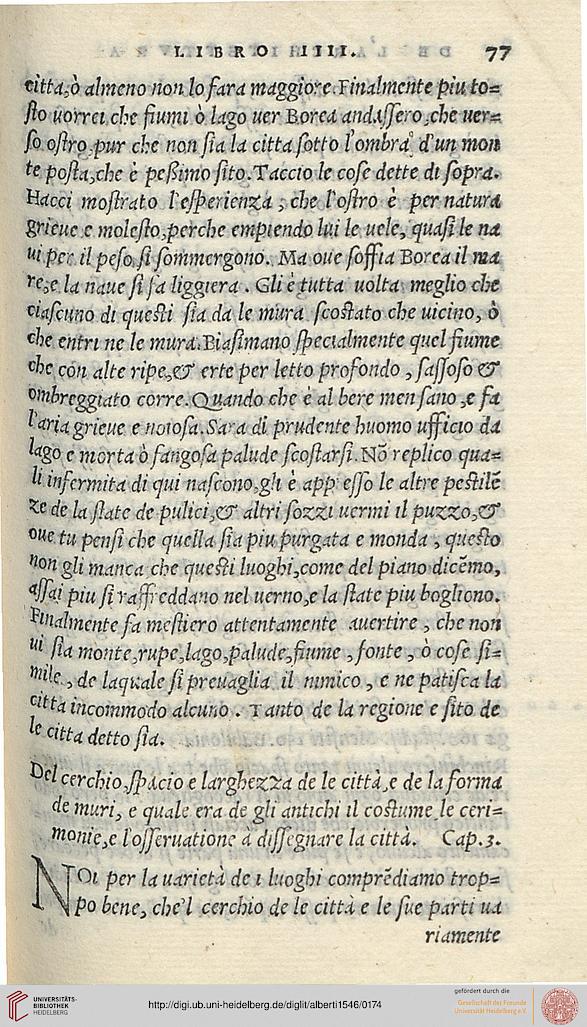 LIBRO IIII. 77
città, ò almeno non lo fara maggiore. Finalmente piu to=
sto uorrei che fiumi ò lago uer Borea andassero, che uer=
so ostro pur che non sia la citta sotto l'ombra d'un mon
te posta, che è peßimo sito. Taccio le cose dette di sopra.
Hacci mostrato l'esperienza, che l'ostro è per natura
grieue e molesto, perche empiendo lui le uele, quasi le na
ui per il peso si sommergono. Ma oue soffia Borea il ma
re, e la naue si fa liggiera. Gli è tutta uolta meglio che
ciascuno di questi sia da le mura scostato che uicino, ò
che entri ne le mura. Biasimano specialmente quel fiume
che con alte ripe, & erte per letto profondo, sassoso &
ombreggiato corre. Quando che è al bere men sano, e fa
l'aria grieue e noiosa. Sara di prudente huomo ufficio da
lago e morta ò fangosa palude scostarsi. Nõ replico qua=
li infermita di qui nascono, gli è app esso le altre pestilẽ
ze de la state de pulici, & altri sozzi uermi il puzzo, &
oue tu pensi che quella sia piu purgata e monda, questo
non gli manca che questi luoghi, come del piano dicẽmo,
assai piu si raffreddano nel uerno, e la state piu bogliono.
Finalmente fa mestiero attentamente auertire, che non
ui sia monte, rupe, lago, palude, fiume, fonte, ò cose si=
mile, de laquale si preuaglia il nimico, e ne patisca la
citta incommodo alcuno. Tanto de la regione e sito de
le citta detto sia.
Del cerchio, spacio e larghezza de le città, e de la forma
de muri, e quale era de gli antichi il costume le ceri=
monie, e l'osseruatione à dissegnare la città. Cap. 3.
NOI per la uarietà de i luoghi comprẽdiamo trop=
po bene, che'l cerchio de le città e le sue parti ua
riamente
UNIVERSITÄTS-
BIBLIOTHEK
HEIDELBERG
http://digi.ub.uni-heidelberg.de/diglit/alberti1546/0174
gefördert durch die
Gesellschaft der Freunde
Universität Heidelberg e.V.